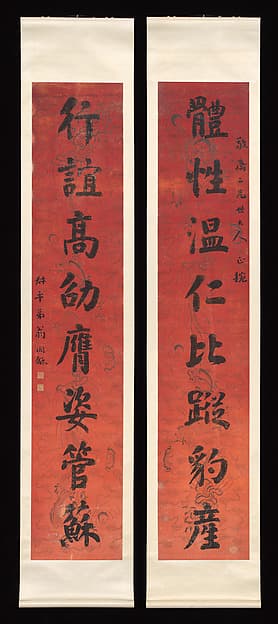 體性温仁比蹤豹產
二兄世大人正腕
行誼髙劭膺姿管蘇
叔平弟翁同龢